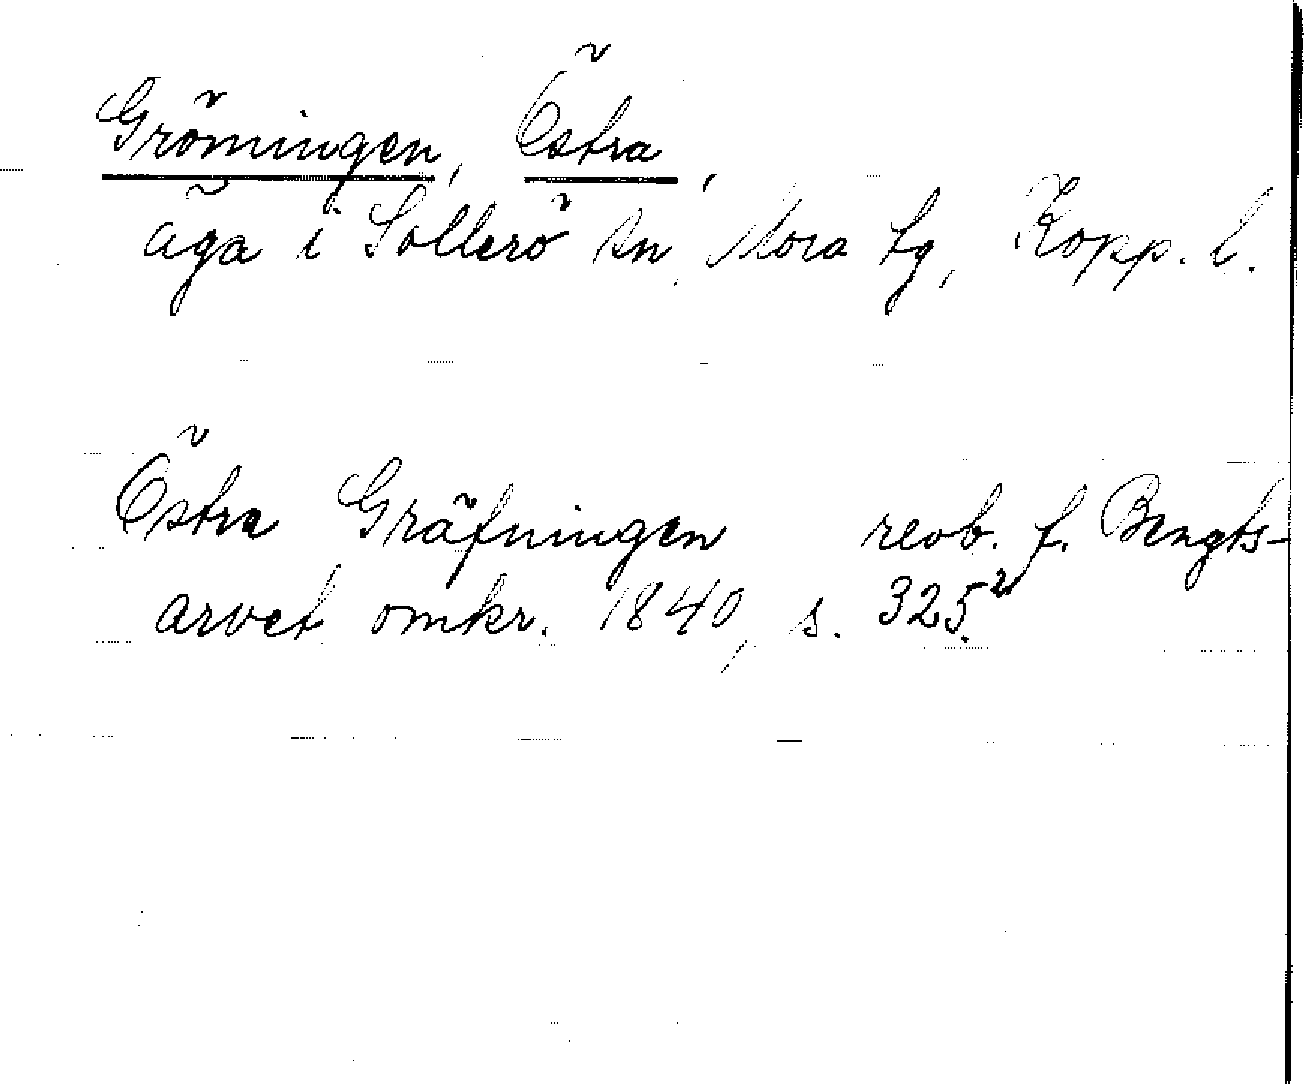 Grömingen, Östra,
äga i Sollerö sn, Mora tg, Kopp. l.
Östra Gräfningen revb. f. Bengts-
arvet omkr. 1840, s. 325²